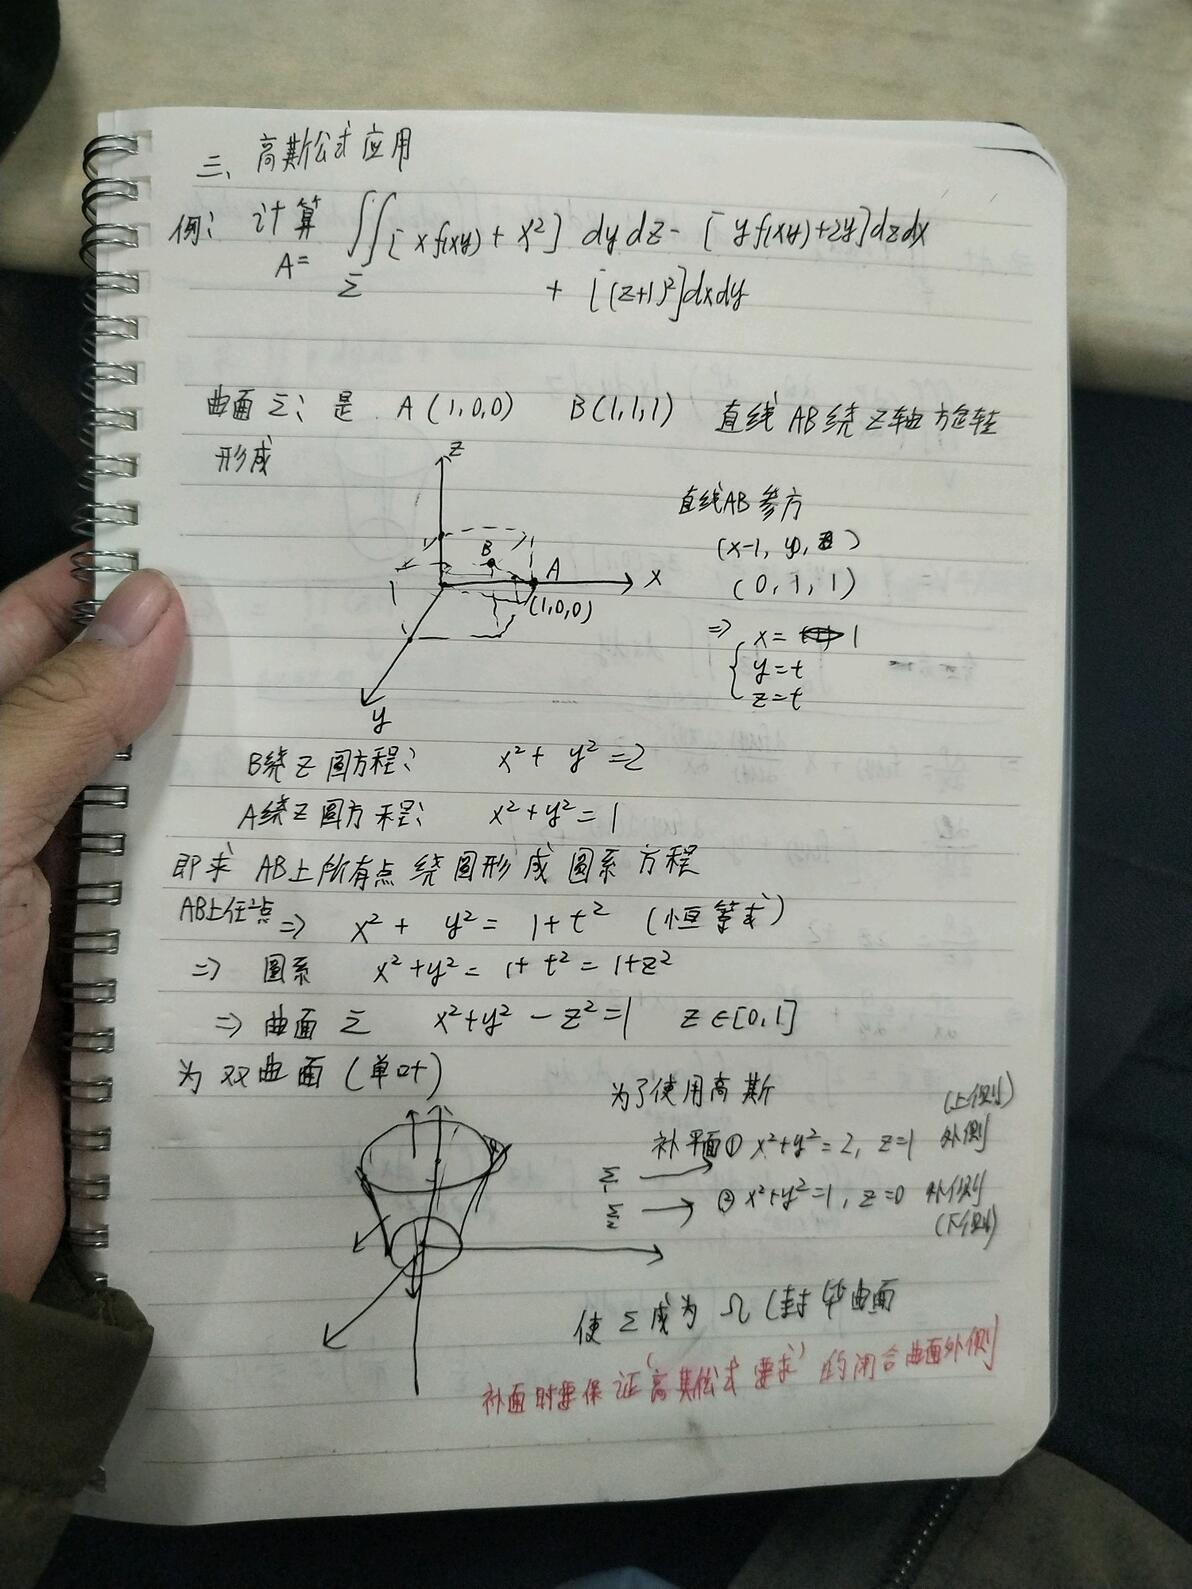 三、高斯公式应用
例: 计算 ∬[xf(xy)+x²]dydz-[yf(xy)+2y]dzdx
A= Σ +[(z+1)²]dxdy
曲面Σ: 是 A(1,0,0) B(1,1,1) 直线AB绕Z轴旋转
形成
z
直线AB参方
(x-1, y, z)
(0,1,1)
B
A
x
(1,0,0)
⇒ x=1
y=t
z=t
y
B绕Z圆方程: x²+y²=2
A绕Z圆方程: x²+y²=1
即求AB上所有点绕圆形成圆系方程
AB上任意点⇒ x²+y²=1+t² (恒等式)
⇒ 圆系 x²+y²=1+t²=1+z²
⇒ 曲面Σ x²+y²-z²=1 z∈[0,1]
为双曲面(单叶)
为了使用高斯
(上侧)
补平面① x²+y²=2, z=1 外侧
Σ₁ → ② x²+y²=1, z=0 外侧
Σ₂ → (下侧)
使Σ成为Ω(封闭曲面
补面时要保证"高斯公式要求"的闭合曲面外侧